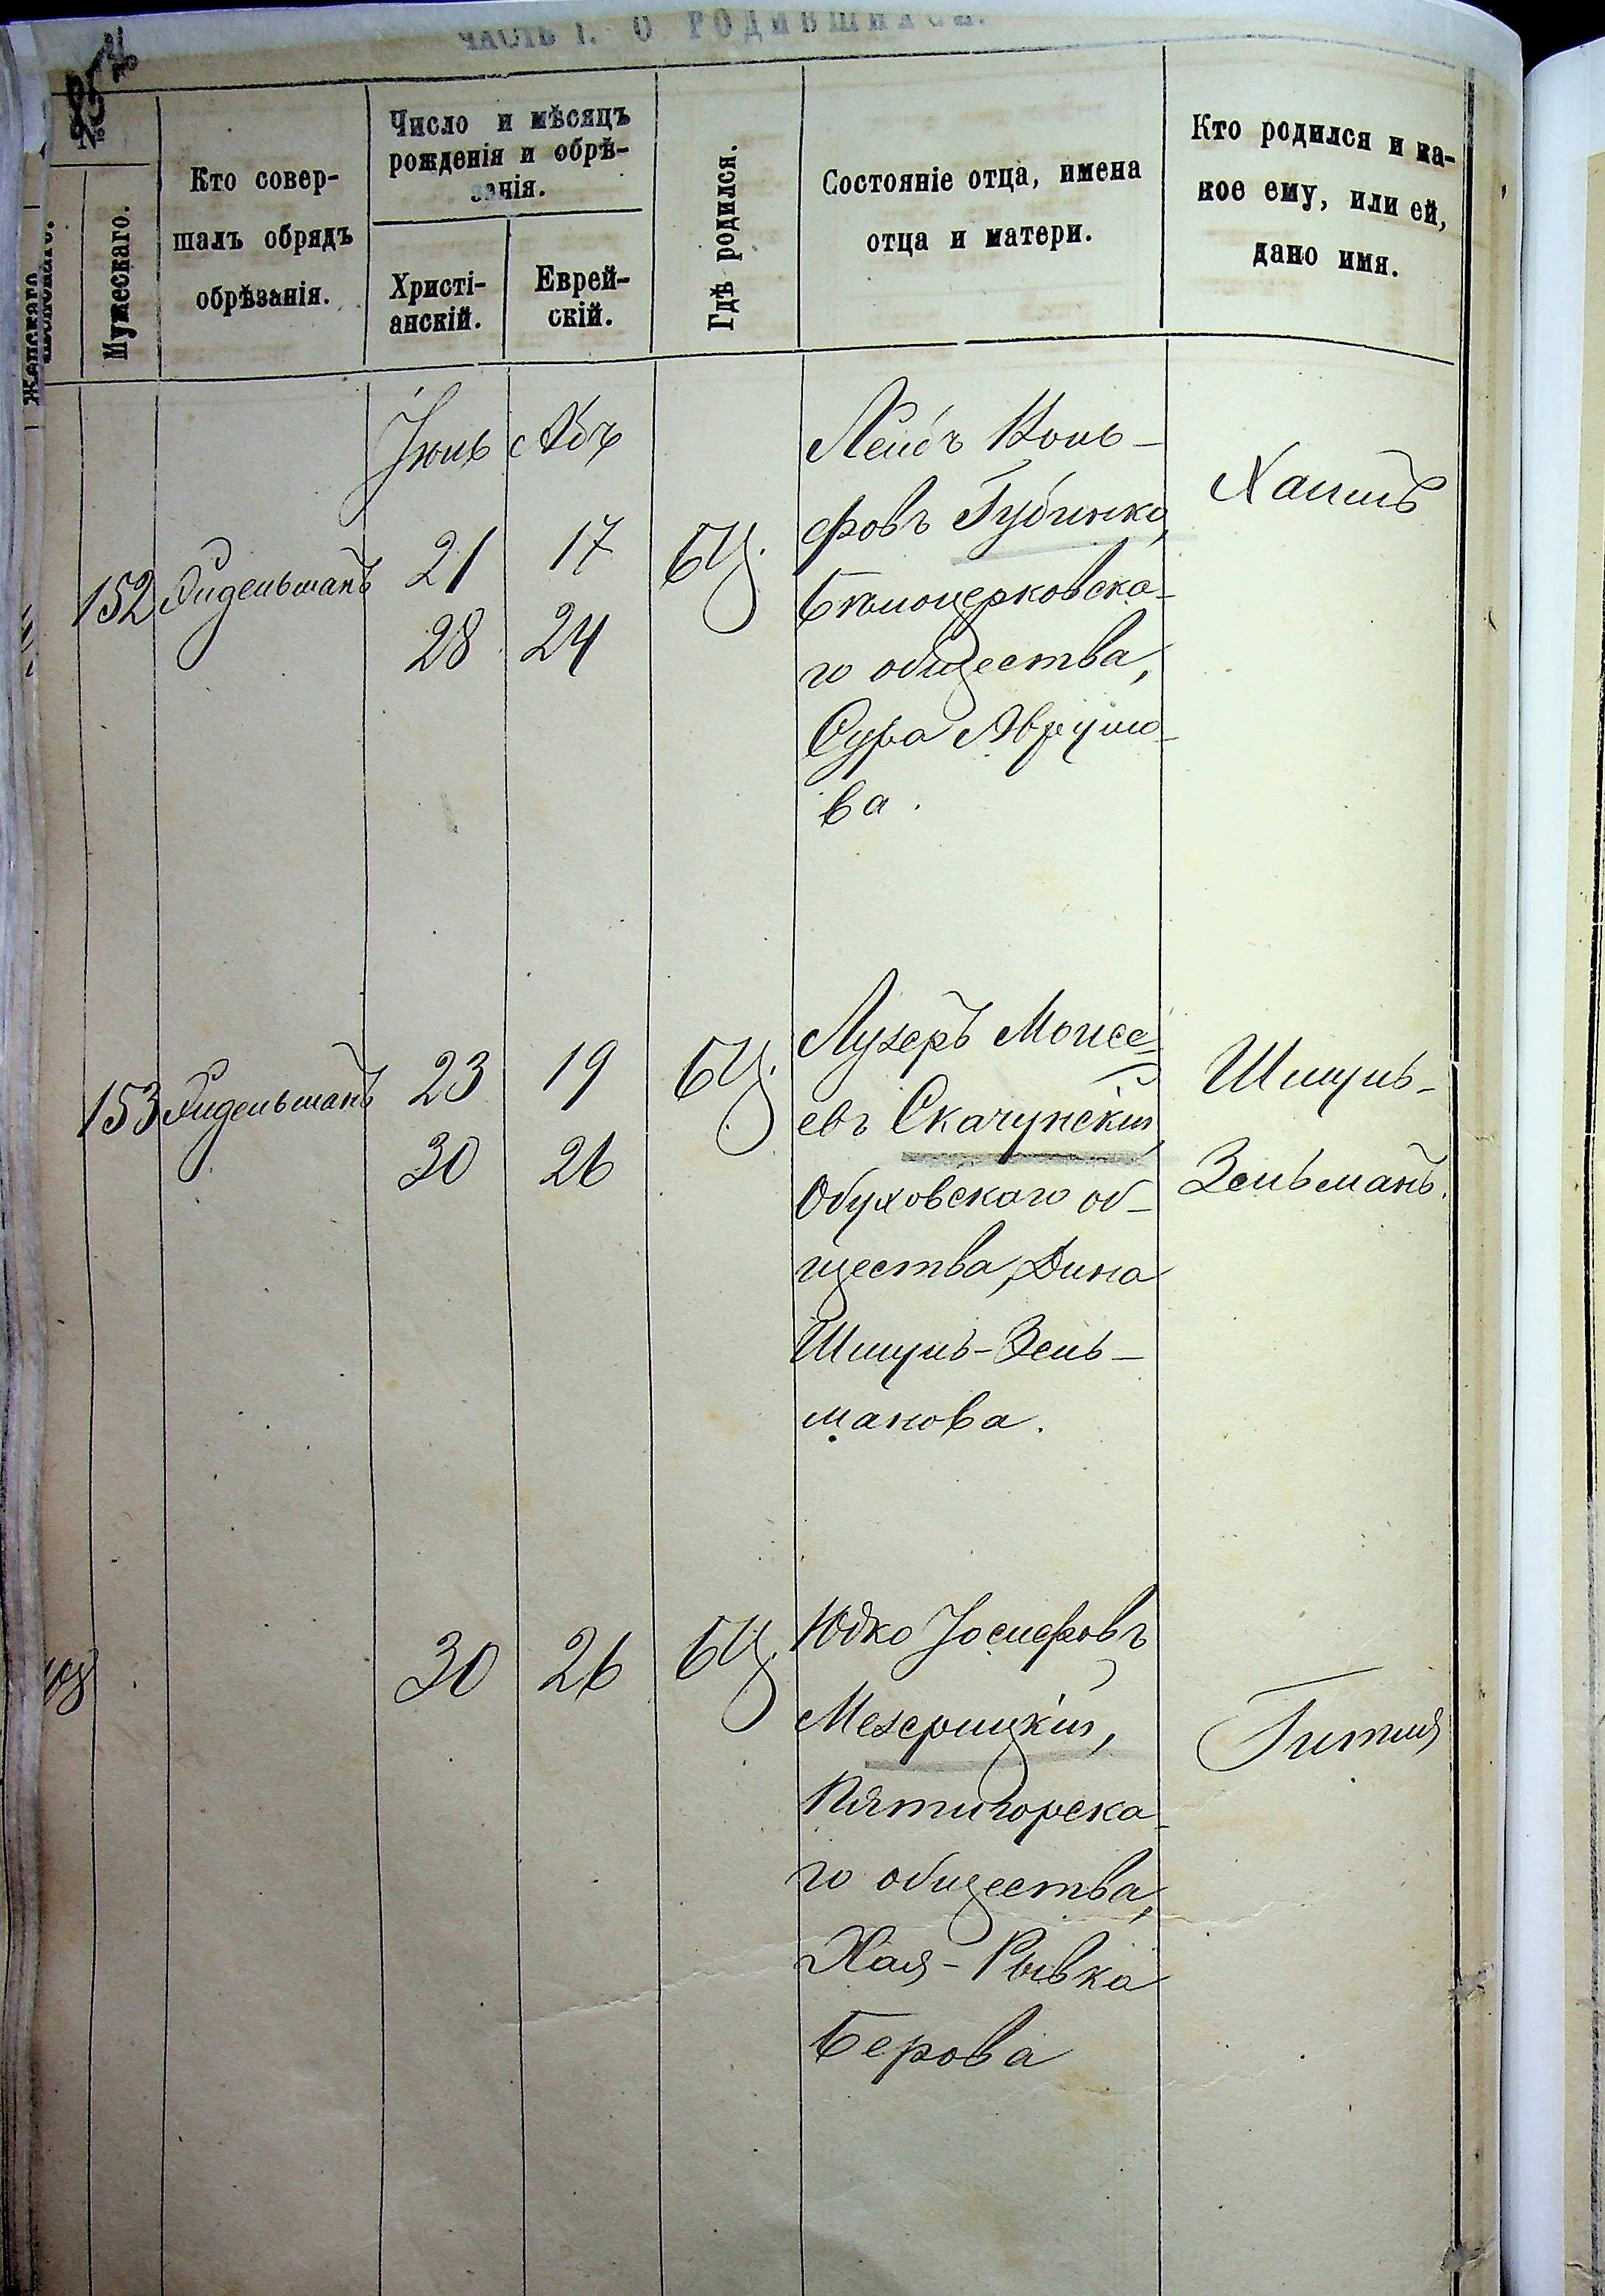 ЧАСТЬ I. О РОДИВШИХСЯ.
№
Женскаго.
Мужескаго.
Кто совер-
шалъ обрядъ
обрѣзанія.
Число и мѣсяцъ
рожденія и обрѣ-
занія.
Христі-
анскій.
Еврей-
скій.
Гдѣ родился.
Состояніе отца, имена
отца и матери.
Кто родился и ка-
кое ему, или ей,
дано имя.
Іюль
Абъ
152
21
28
17
24
БЦ.
Лейбъ
Губинко,
Бѣлоцерковска-
го общества,
Сура Аврумо-
ва.
Хаимъ
153
23
30
19
26
БЦ.
Лузеръ Моисе-
евъ Скачунскій,
Обуховскаго об-
щества, Дина
Шмуль-Зель-
манова.
Шмуль-
Зельманъ.
30
26
БЦ.
Юдко Іосифовъ
Межерицкій,
Пятигорска-
го общества,
Хая-Рывка
Берова
Гитля